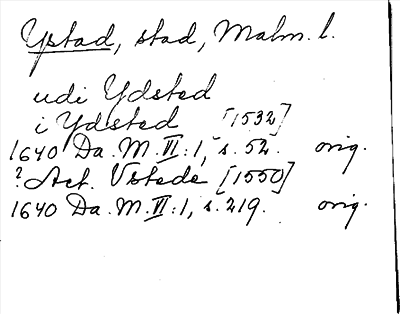 Ystad, stad, Malm. l.
udi Ydsted
i Ydsted [1532]
1640 Da. M. VI:1, s. 52. orig.
? Act. Vstede [1550]
1640 Da. M. VI:1, s. 219. orig.